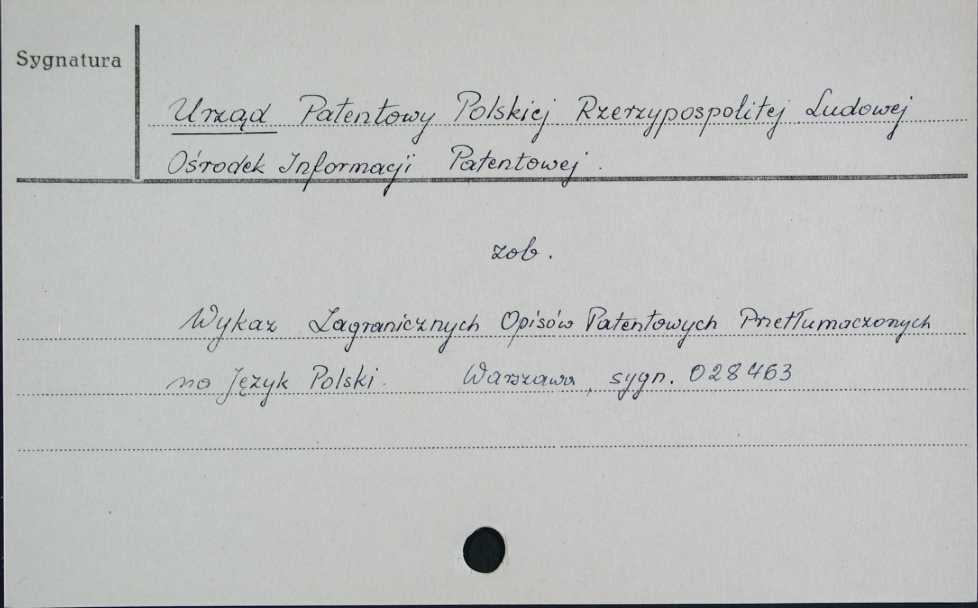 Sygnatura
Urząd Patentowy Polskiej Rzerzypospolitej Ludowej
Ośrodek Informacji Patentowej.
zob.
Wykaz Zagranicznych Opisów Patentowych Przetłumaczonych
na Język Polski. Warszawa, sygn. 028463